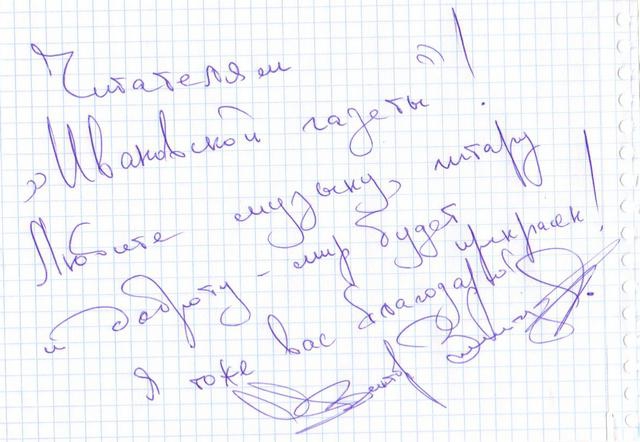 Читателям
"Ивановской газеты"!
Любите музыку, гитару
и доброту - мир будет прекрасен!
Я тоже вас благодарю!